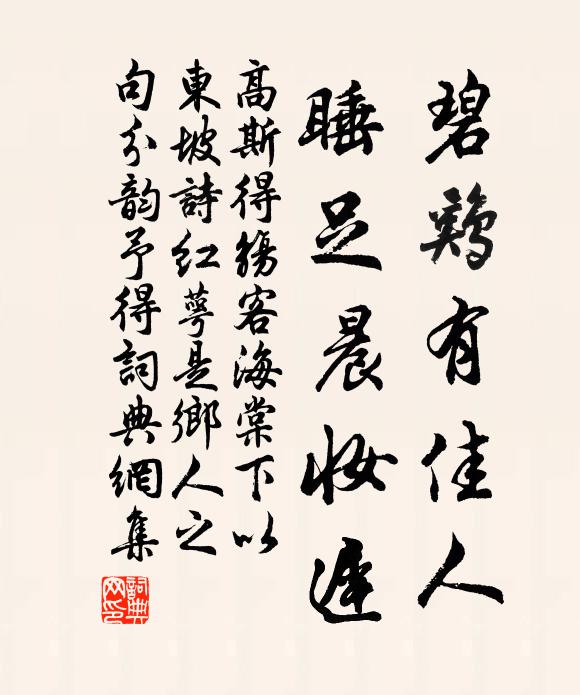 碧鷄有佳人
睡足晨妝遲
高斯得觴客海棠下以
東坡詩紅萼是鄉人之
句分韵予得詞典網集
詞典網印